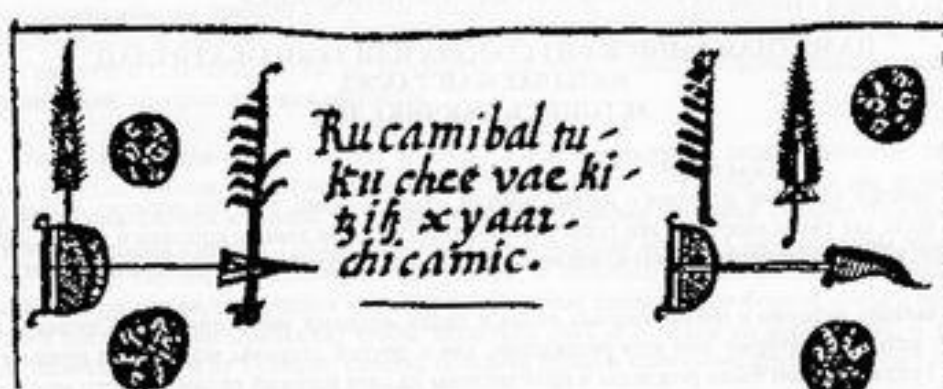 Rucamibal tu-
ku chee vae ki-
ꜩih x yaar-
chi camic.